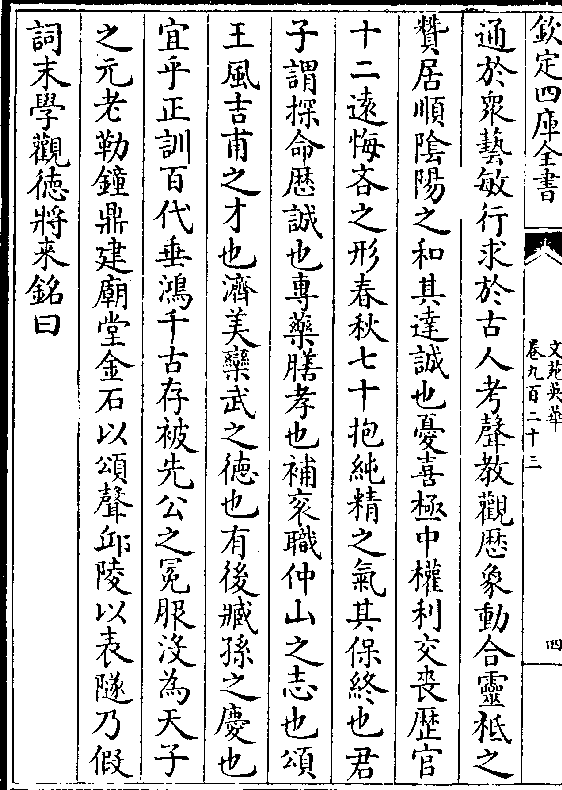 欽定四庫全書
文苑英華
卷九百二十三
四
通於衆藝敏行求於古人考聲教觀厯象動合靈祗之
贊居順陰陽之和其達誠也憂喜極中權利交喪歴官
十二遠悔吝之形春秋七十抱純精之氣其保終也君
子謂探命厯誠也專藥膳孝也補衮職仲山之志也頌
王風吉甫之才也濟美欒武之徳也有後臧孫之慶也
宜乎正訓百代垂鴻千古存被先公之冕服沒為天子
之元老勒鐘鼎建廟堂金石以頌聲邱陵以表隧乃假
詞末學觀徳將来銘曰